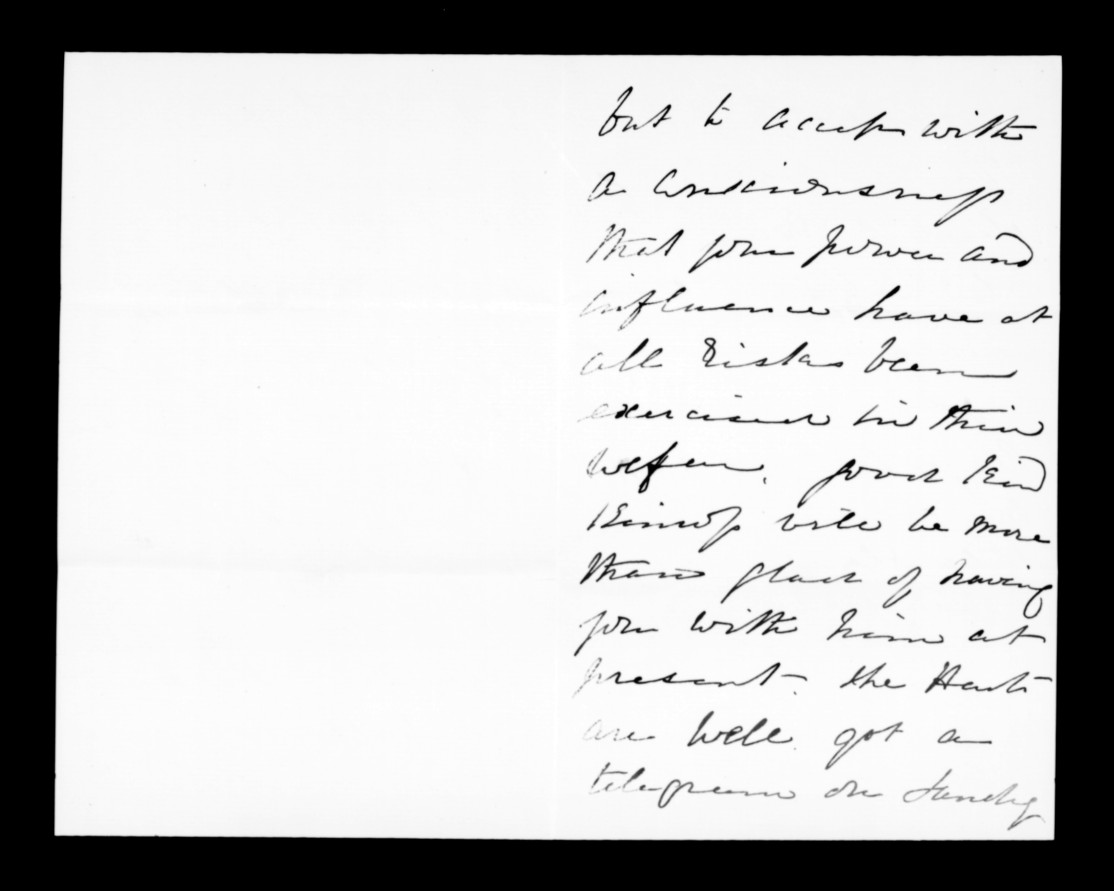 but to accept with
a consciousness
that your power and
influence have at
all risks been
exercised in their
welfare. good kind
Kinross will be more
than glad of having
you with him at
present. the Harts
are well. got a
telegram on Sandy